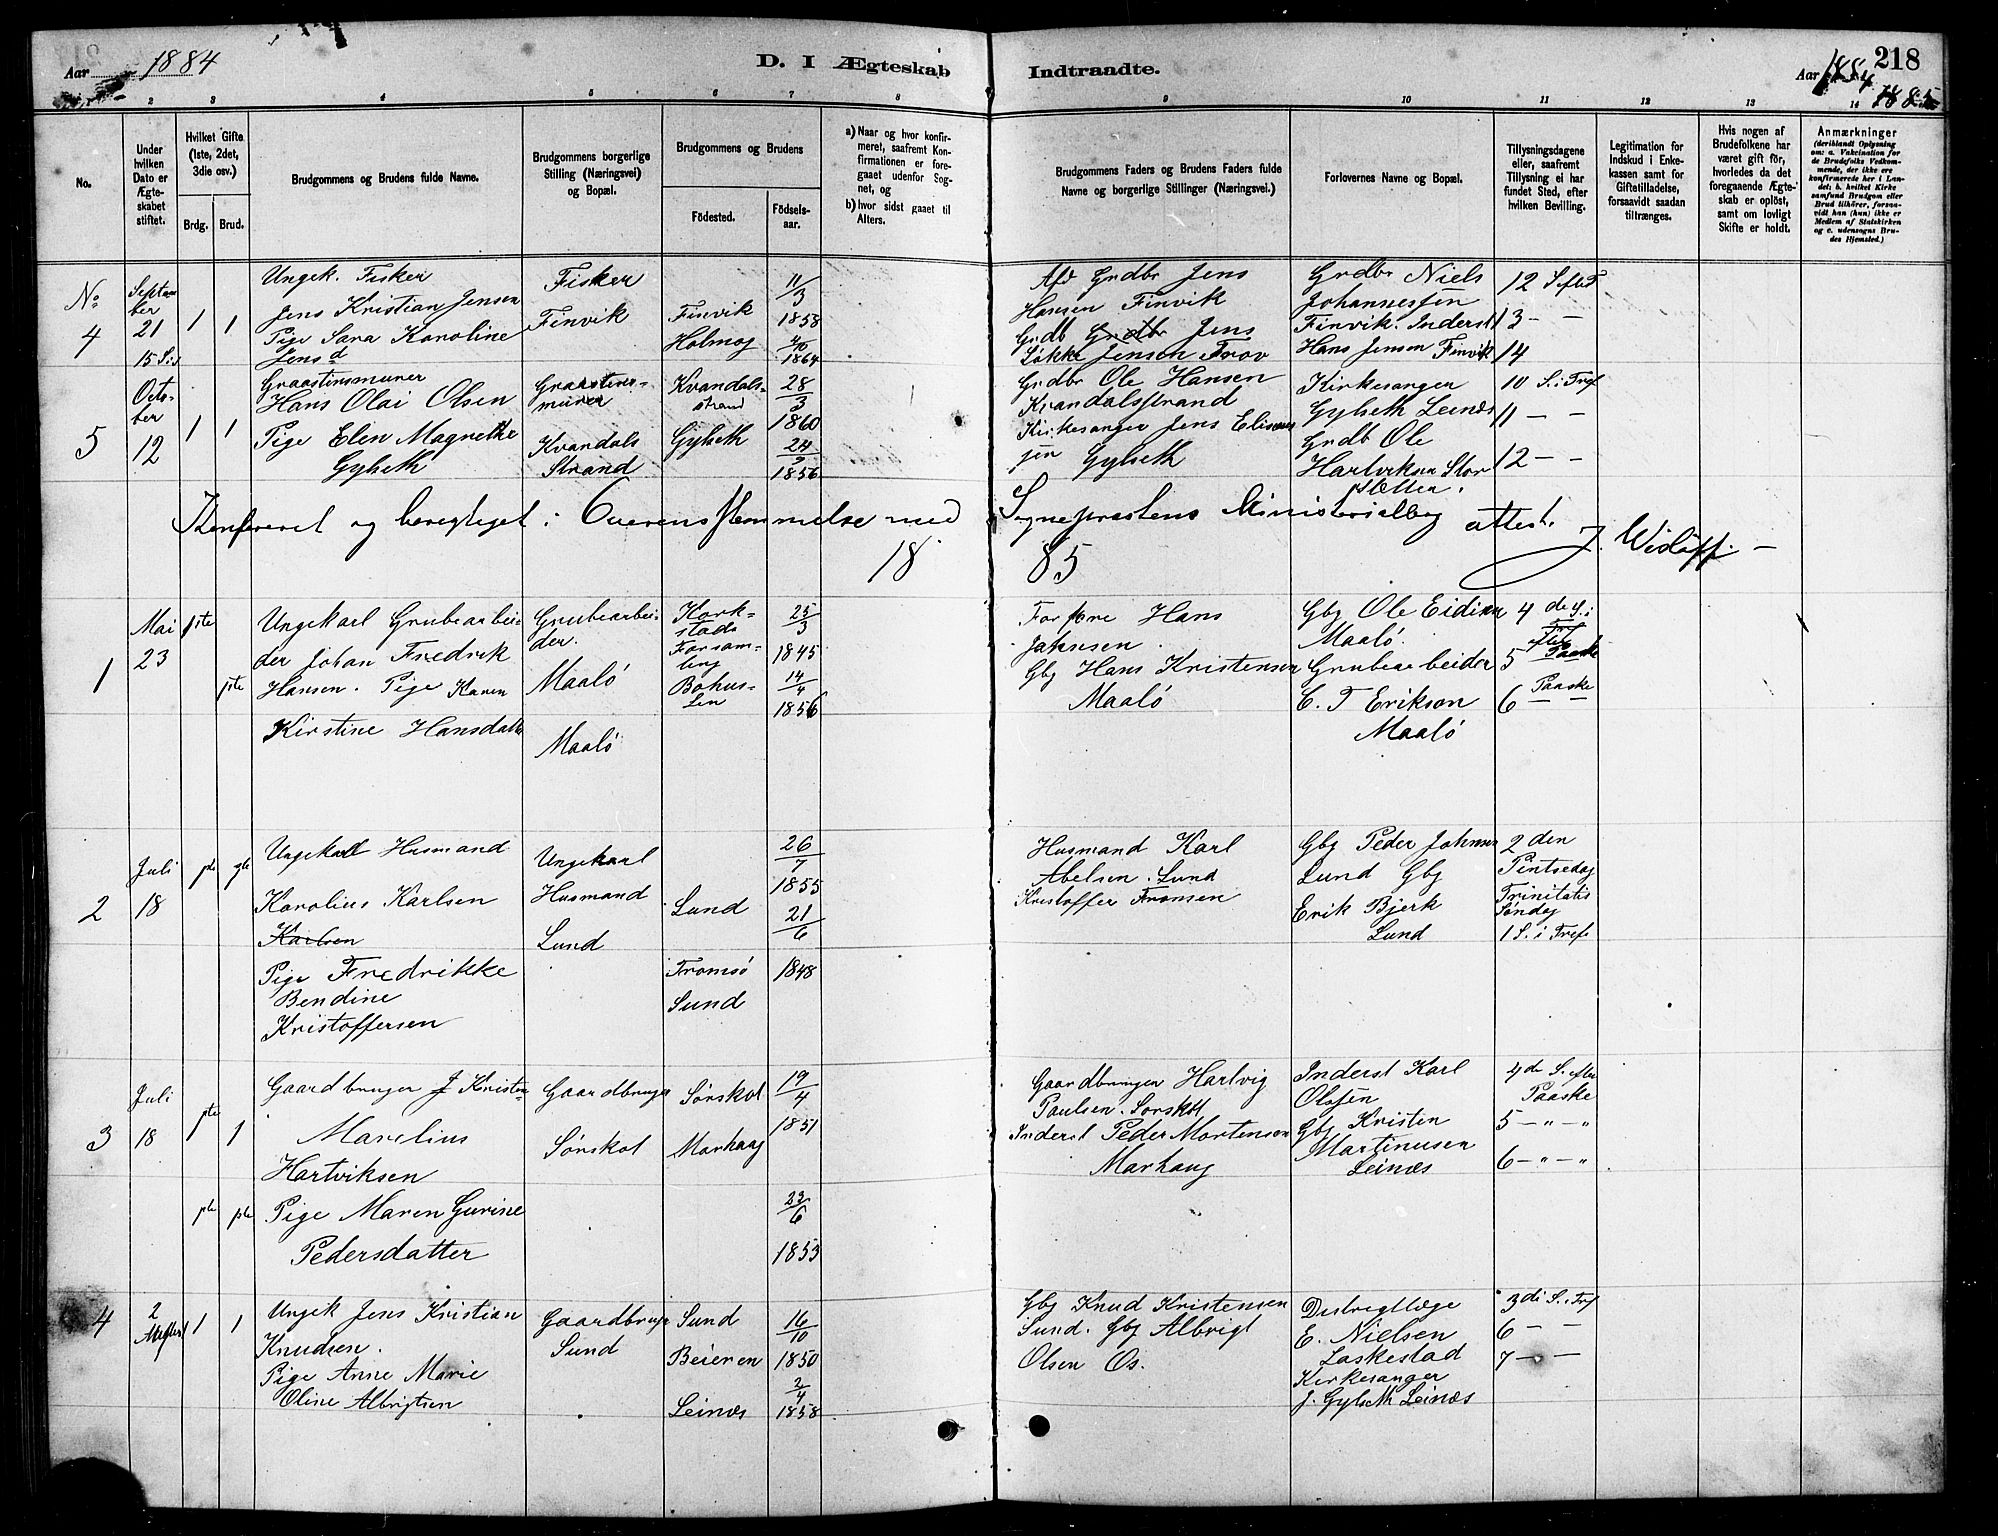 Aar 1884
D. I Ægteskab
Indtraadte.
Aar 1884
218
1885
2 3 4 5 6 7 8 9 10 11 12 13 14
No.
Under hvilken Dato er Ægteskabet stiftet.
Hvilket Gifte (1ste, 2det, 3die osv.)
Brdg. Brud.
Brudgommens og Brudens fulde Navne.
Brudgommens borgerlige Stilling (Næringsvei) og Bopæl.
Brudgommens og Brudens
Födested.
Födselsaar.
a) Naar og hvor konfirmeret, saafremt Konfirmationen er foregaaet udenfor Sognet, og
b) hvor sidst gaaet til Alters.
Brudgommens Faders og Brudens Faders fulde Navne og borgerlige Stillinger (Næringsvei.)
Forlovernes Navne og Bopæl.
Tillysningsdagene eller, saafremt Tillysning ei har fundet Sted, efter hvilken Bevilling.
Legitimation for Indskud i Enkekassen samt for Giftetilladelse, forsaavidt saadan tiltrænges.
Hvis nogen af Brudefolkene har været gift för, hvorledes da det foregaaende Ægteskab er oplöst, samt om lovligt Skifte er holdt.
Anmærkninger (deriblandt Oplysning om: a. Vakcination for de Brudefolks Vedkommende, der ikke ere konfirmerede her i Landet; b. hvilket Kirkesamfund Brudgom eller Brud tilhörer, forsaavidt han (hun) ikke er Medlem af Statskirken og c. udensogns Brudes Hjemsted.)
No 4
September 21
1 1
Ungek. Fisker
Jens Kristian Jensen
Pige Sara Karoline
Jensd
Fisker
Finvik
Finvik
Holmog
11/3 1858
1864
Afd Grdbr Jens
Hansen Finvik
Grdb Grdbr Jens
Løkke Jensen Trov
Grdbr Niels
Johannessen
Finvik. Inderst
Hans Jensen Finvik
12 S efter T
13 – –
14
5
October 12
1 1
Graastensmurer
Hans Olai Olsen
Pige Elen Magrethe
Gylseth
Graastensmurer
Kvandals
Strand
Kvandalsstrand
Gylseth
28/3 1860
24/3 1856
Grdbr Ole Hansen
Kvandalsstrand
Kirkesanger Jens Elisæussen
Gylseth
Kirkesanger
Gylseth Leinæs
Grdb Ole
Hartviksen Storsletten.
10 S. i Tref
11 – –
12 – –
Konfereret og berigtiget i Overensstemmelse med Sogneprestens Ministerialbog attest.
J. Wisløff. –
18 85
1
Mai 23
1ste
1ste
Ungekarl Grubearbeider
Johan Fredrik
Hansen. Pige Karen
Kirstine Hansdatter
Grubearbeider.
Maalö
Maalö
Korkstads
Forsamling
Bohuslen
25/3 1845
14/4 1856
Forpre Hans
Jahnsen.
Gbg Hans Kristensen
Maalö
Gbg Ole Eidissen
Maalö.
Grubearbeider
C. T Erikson
Maalö
4 de S. i
efter Paaske
5 Paaske
6 – –
2
Juli 18
Ungekarl Husmand
Karolius Karlsen
Karlsen
Pige Fredrikke
Bendine
Kristoffersen
Ungekarl
Husmand
Lund
Lund
Tromsö
Sund
26/7 1855
21/6 1848
Husmand Karl
Abelsen. Lund
Kristoffer Fransen
Gbg Peder Johnsen
Lund Gbg
Erik Bjerk
Lund
2 den
Pintsedag
Trinitatis
Söndag
1 S. i Tref
3
Juli 18
1ste 1
1ste 1ste
Gaardbruger J Kristen
Marelius
Hartviksen
Pige Maren Gurine
Pedersdatter
Gaardbruger
Sørskot
Sørskot
Marhaug
19/4 1851
23/6 1853
Gaardbruger Hartvig
Paulsen. Sorskot
Inderst Peder Mortensen
Marhaug
Inderst Karl
Olafsen
Gbg Kristen
Martinusen
Leinæs
4de S. efter
Paaske
5 – " – "
6 – " – "
4
2
1 1
Ungek Jens Kristian
Knudsen.
Pige Anne Marie
Oline Albrigtsen
Gaardbruger
Sund
Sund
Beieren
Leinæs
16/10 1850
2/4 1858
Gbg Knud Kristensen
Sund. Gbg Albrigt
Olsen Os.
Distrigtlæge
E. Nielsen
Laskestad
Kirkesanger
J. Gylseth Leinæs
3di S. i Tref
6 – –
7 – –